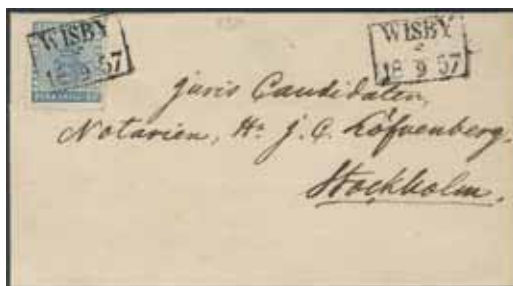 WISBY
18 9 57
WISBY
18 9 57
Juris Candidaten,
Notarien, Hr J. C. Löfvenberg.
Stockholm.